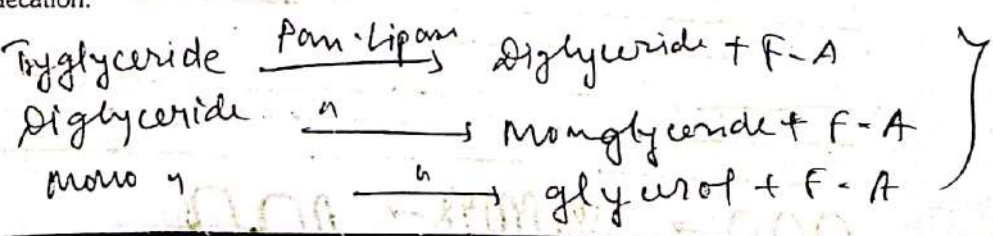 lecation.
Tryglyceride Pan. Lipase → Diglyceride + F-A
Diglyceride " → Monoglyceride + F-A
Mono " " → glycerol + F-A